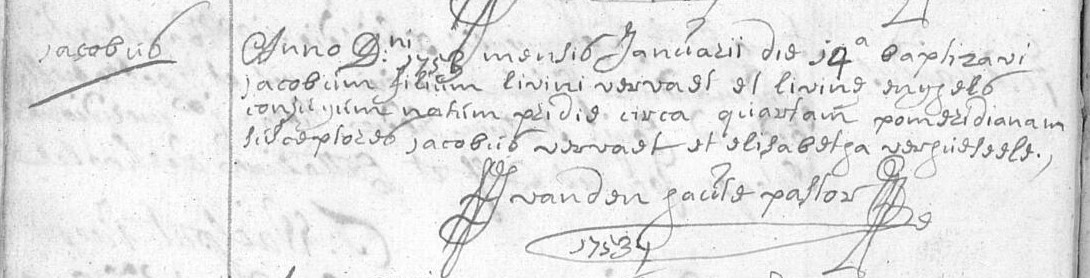 jacobus
Anno D:ni mensis Januarii die 14a baptizavi
jacobum filium livini vervaet et livine engels
conjugum natum pridie circa quartam pomeridianam
susceptores jacobus vervaet et elisabetha
vanden pastor